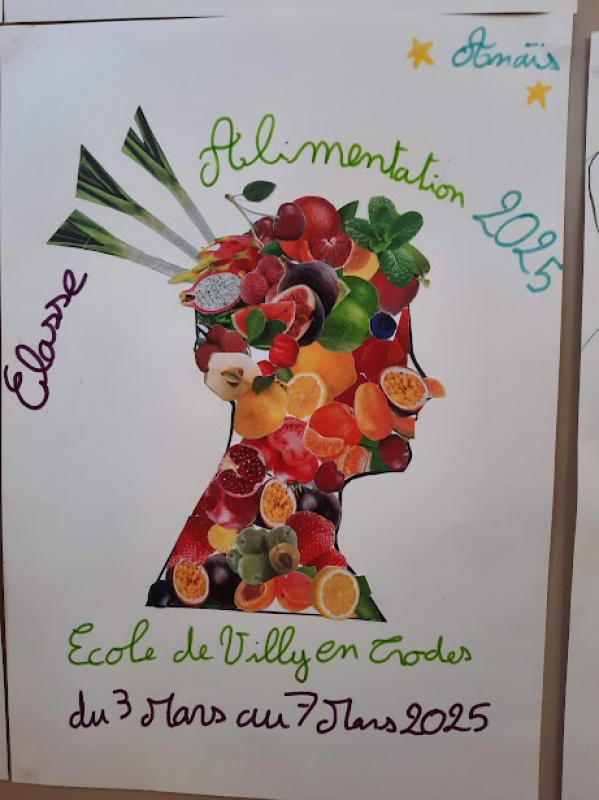 Anaïs
Classe Alimentation 2025
Ecole de Villy en Trodes
du 3 Mars au 7 Mars 2025